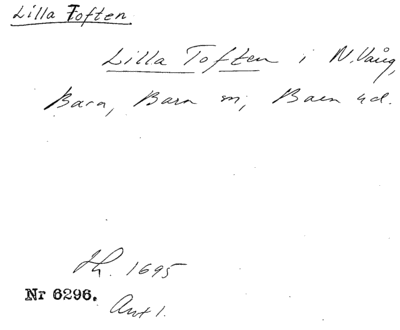 Lilla Toften
Lilla Toften i N. Vång,
Bara, Bara sn, Bara hd.
Lh. 1695
Nr 6296.
Avt 1.